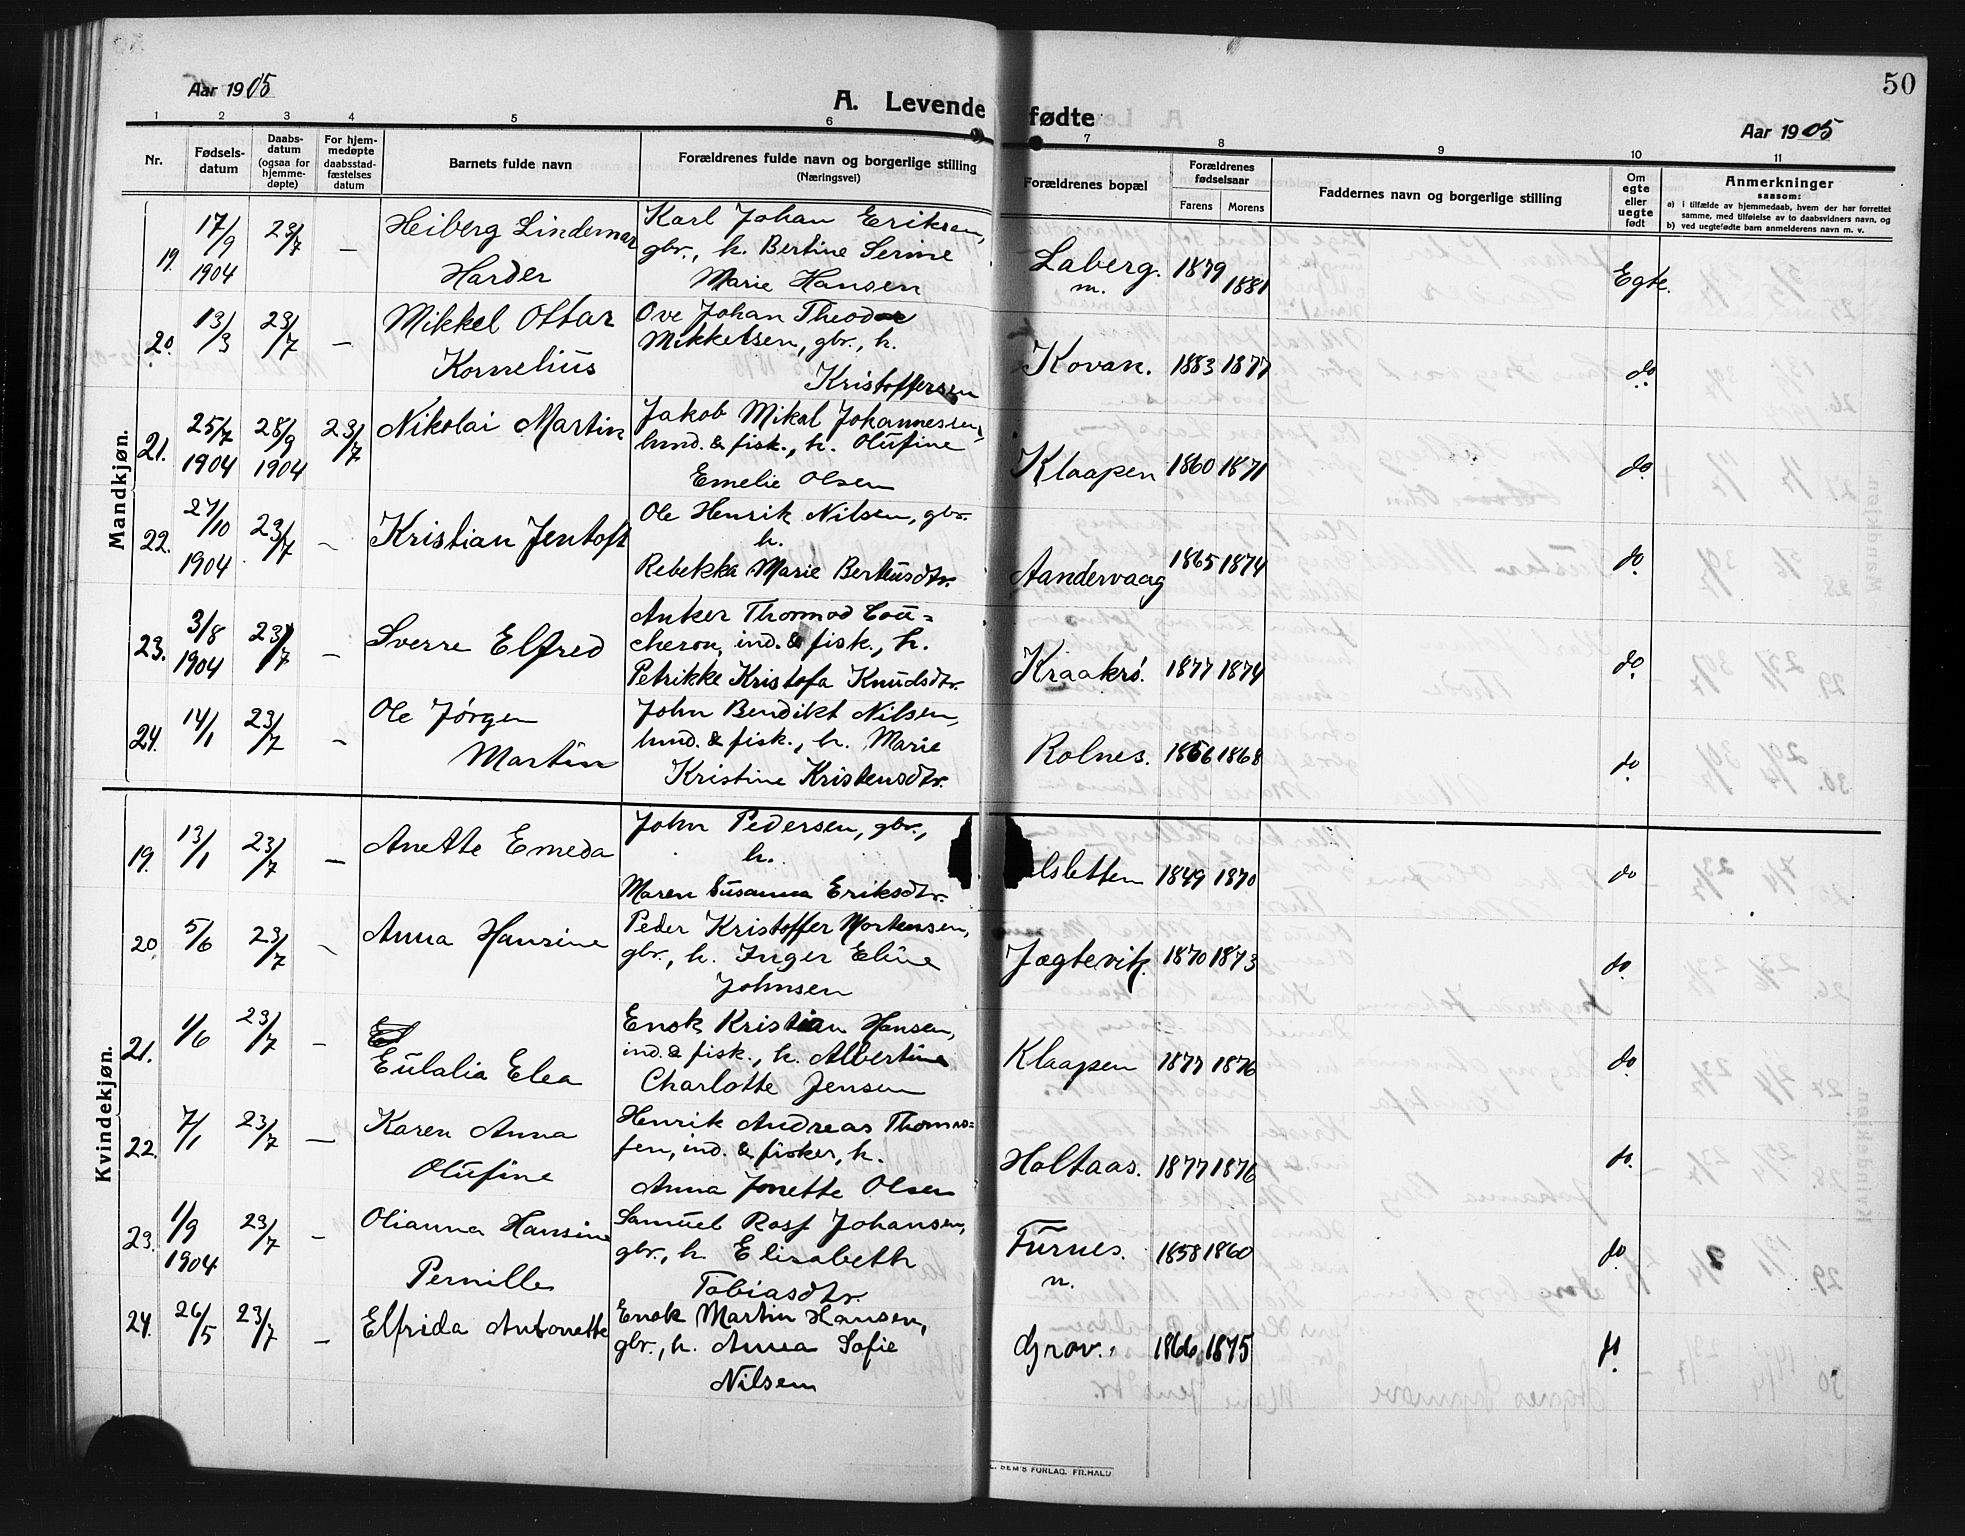 50
Aar 1905
A. Levende fødte
Aar 1905
1 2 3 4 5 6 7 8 9 10 11
Nr.
Fødsels-
datum
Daabs-
datum
(ogsaa for
hjemme-
døpte)
For hjem-
medøpte
daabsstad-
fæstelses
datum
Barnets fulde navn
Forældrenes fulde navn og borgerlige stilling
(Næringsvei)
Forældrenes bopæl
Forældrenes
fødselsaar
Farens Morens
Faddernes navn og borgerlige stilling
Om
egte
eller
uegte
født
Anmerkninger
saasom:
a) i tilfælde av hjemmedaab, hvem der har forrettet
samme, med tilføielse av to daabsvidners navn, og
b) ved uegtefødt barn anmelderens navn m. v.
Mandkjøn.
19. 17/9 1904 23/7 — Heiberg Lindemar
Harder
Karl Johan Eriksen,
gbr., h. Bertine Serine
Marie Hansen
Laberg. 1879 1881 Egte.
m.
20. 13/3 23/7 — Mikkel Ottar
Kornelius
Ove Johan Theodor
Mikkelsen, gbr., h.
Kristoffersen
Kovan. 1883 1877 do.
21. 25/7 1904 28/9 1904 23/7 Nikolai Martin
Jakob Mikal Johannessen,
lund. & fisk., h. Olufine
Emelie Olsen
Klaapen 1860 1871 do
22. 27/10 1904 23/7 — Kristian Jentoft
Ole Henrik Nilsen, gbr.
h.
Rebekka Marie Berteusdtr.
Aandervaag 1865 1874 do.
23. 3/8 1904 23/7 — Sverre Elfred
Anker Thormod Cou=
cheron, ind. & fisk., h.
Petrikke Kristofa Knudsdtr.
Kraakrø. 1877 1874 do.
24. 14/1 23/7 — Ole Jørgen
Martin
John Bendikt Nilsen,
lund. & fisk., h. Marie
Kristine Kristensdtr.
Rolnes. 1866 1868 do.
Kvindekjøn.
19. 13/1 23/7 — Anette Emeda
John Pedersen, gbr.,
h.
Maren Susanna Eriksdtr.
elsletten 1849 1870 do
20. 5/6 23/7 — Anna Hansine
Peder Kristoffer Mortensen,
gbr., h. Inger Eline
Johnsen
Jægtevik. 1870 1873 do.
21. 1/6 23/7 —
Eulalia Elea
Enok Kristian Hansen,
ind. & fisk., h. Albertine
Charlotte Jensen
Klaapen 1877 1876 do.
22. 7/1 23/7 — Karen Anna
Olufine
Henrik Andreas Thomas=
sen, ind. & fisker, h.
Anna Jonette Olsen
Holtaas. 1877 1876 do.
23. 1/9 1904 23/7 — Olianna Hansine
Pernille
Samuel Rosf Johansen,
gbr., h. Elisabeth
Tobiasdtr.
Furnes. 1858 1860 do.
n.
24. 26/5 23/7 — Elfrida Antonette
Enok Martin Hansen,
gbr., h. Anna Sofie
Nilsen
Grov. 1866 1875 do.
SEM'S FORLAG, FR.HALD